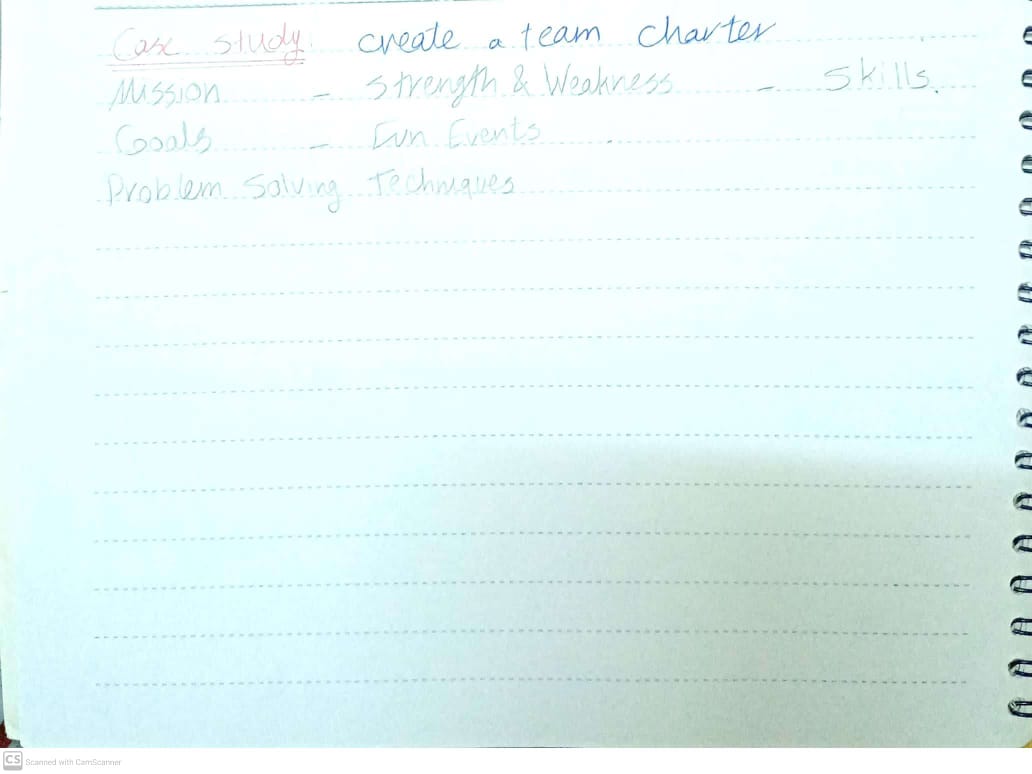 Case study: create a team charter
Mission - Strength & Weakness - Skills.
Goals - Fun Events
Problem Solving Techniques
CS Scanned with CamScanner